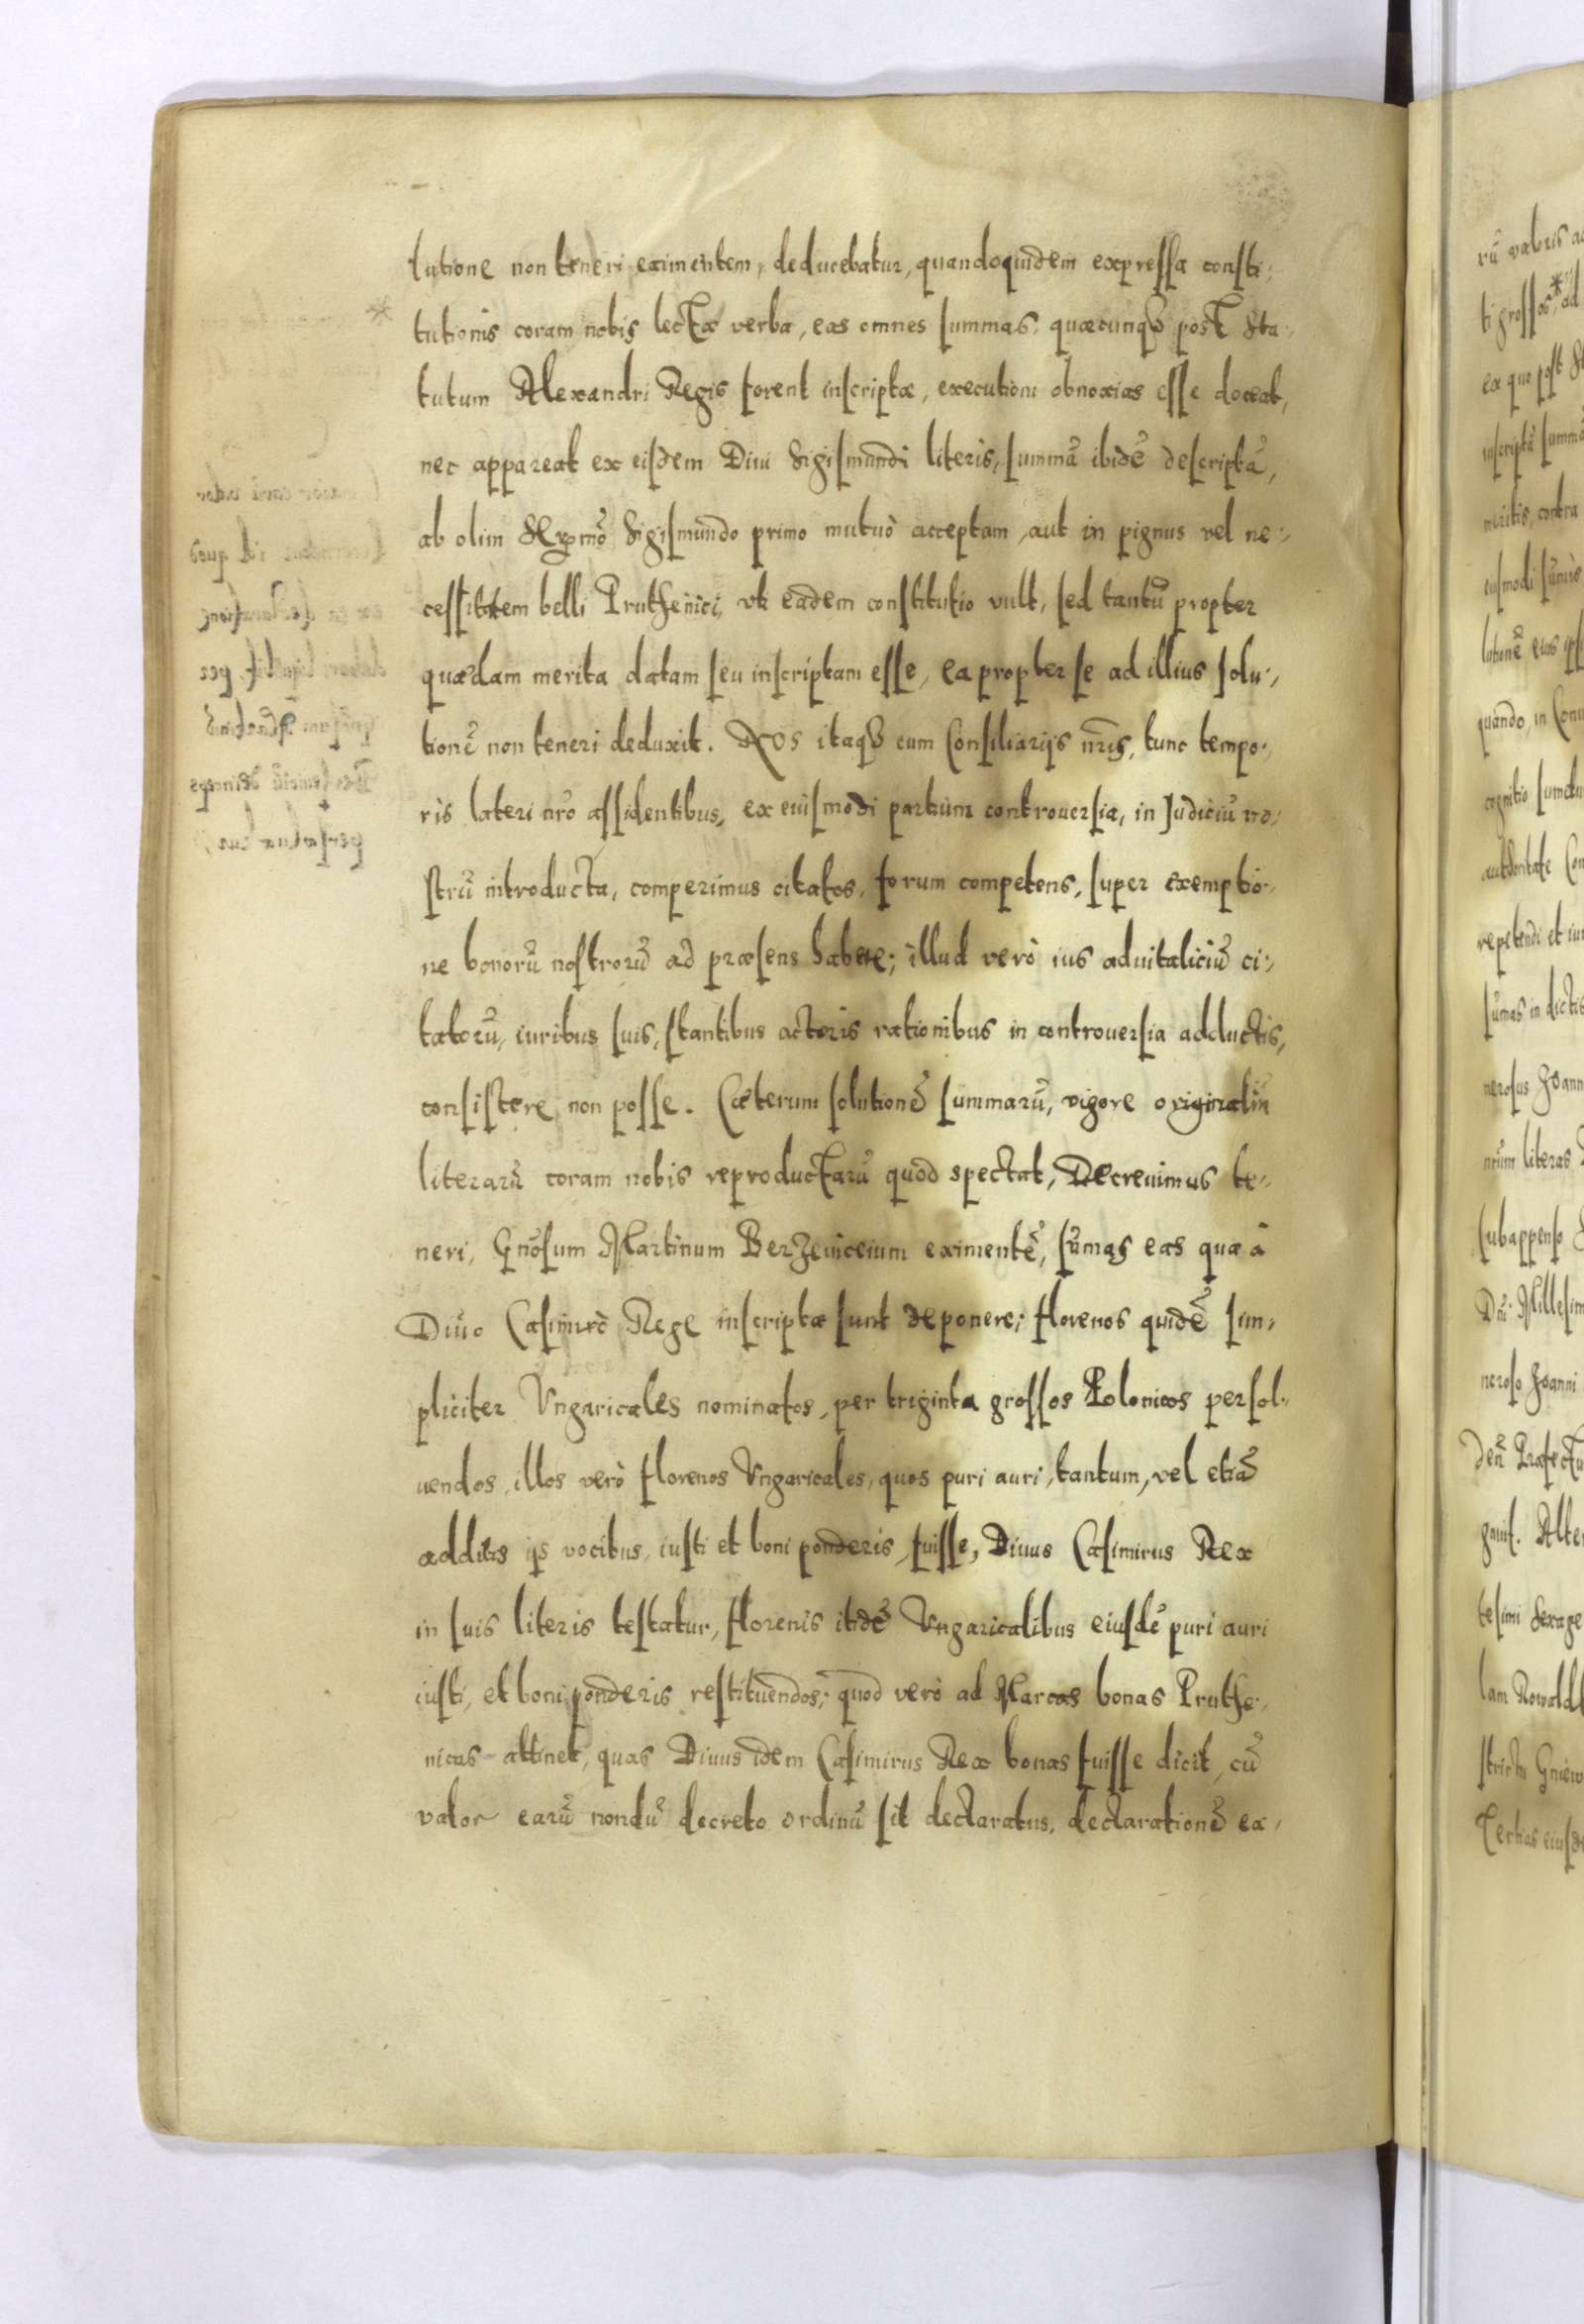 lutione non teneri eximentem, deducebatur, quandoquidem expressa consti-
tutionis coram nobis lectæ verba, eas omnes summas, quæcunqꝫ post Sta-
tutum Alexandri Regis forent inscriptæ, executioni obnoxias esse doceat,
nec appareat ex eisdem Diui Sigismundi literis, summā ibidē descriptā,
ab olim Serx̄mo Sigismundo primo mutuò acceptam, aut in pignus vel ne-
cessitatem belli Pruthenici, vti eadem constitutio vult, sed tantū propter
quædam merita datam seu inscriptam esse, ea propter se ad illius solu-
tionē non teneri deduxit. Nos itaqꝫ cum Consiliarijs nr̄is, tunc tempo-
ris lateri nr̄o assidentibus, ex eiusmodi partium controuersia, in Judiciū no-
strū introducta, comperimus citatos, forum competens, super exemptio-
ne bonorū nostrorū ad præsens habere; illud verò ius aduitaliciū ci-
tatorū, iuribus suis, stantibus actoris rationibus in controuersia adductis,
consistere non posse. Cæterum solutionē summarū, vigore originaliū
literarū coram nobis reproductarū quod spectat, Decreuimus te-
neri, Gnōsum Martinum Berzeuiceium eximentē, sūmas eas quæ à
Diuo Casimirò Rege inscriptæ sunt deponere; florenos quidē sim-
pliciter Vngaricales nominatos, per triginta grossos Polonicos persol-
uendos, illos verò florenos Vngaricales, quos puri auri, tantum, vel etiā
additis ijs vocibus, iusti et boni ponderis, fuisse, Diuus Casimirus Rex
in suis literis testatur, florenis itidē Vngaricalibus eiusdē puri auri
iusti, et boni ponderis restituendos; quod verò ad Marcas bonas Pruthe-
nicas attinet, quas Diuus idem Casimirus Rex bonas fuisse dicit, cū
valor earū nondū decreto ordinū sit declaratus, declarationē ex-